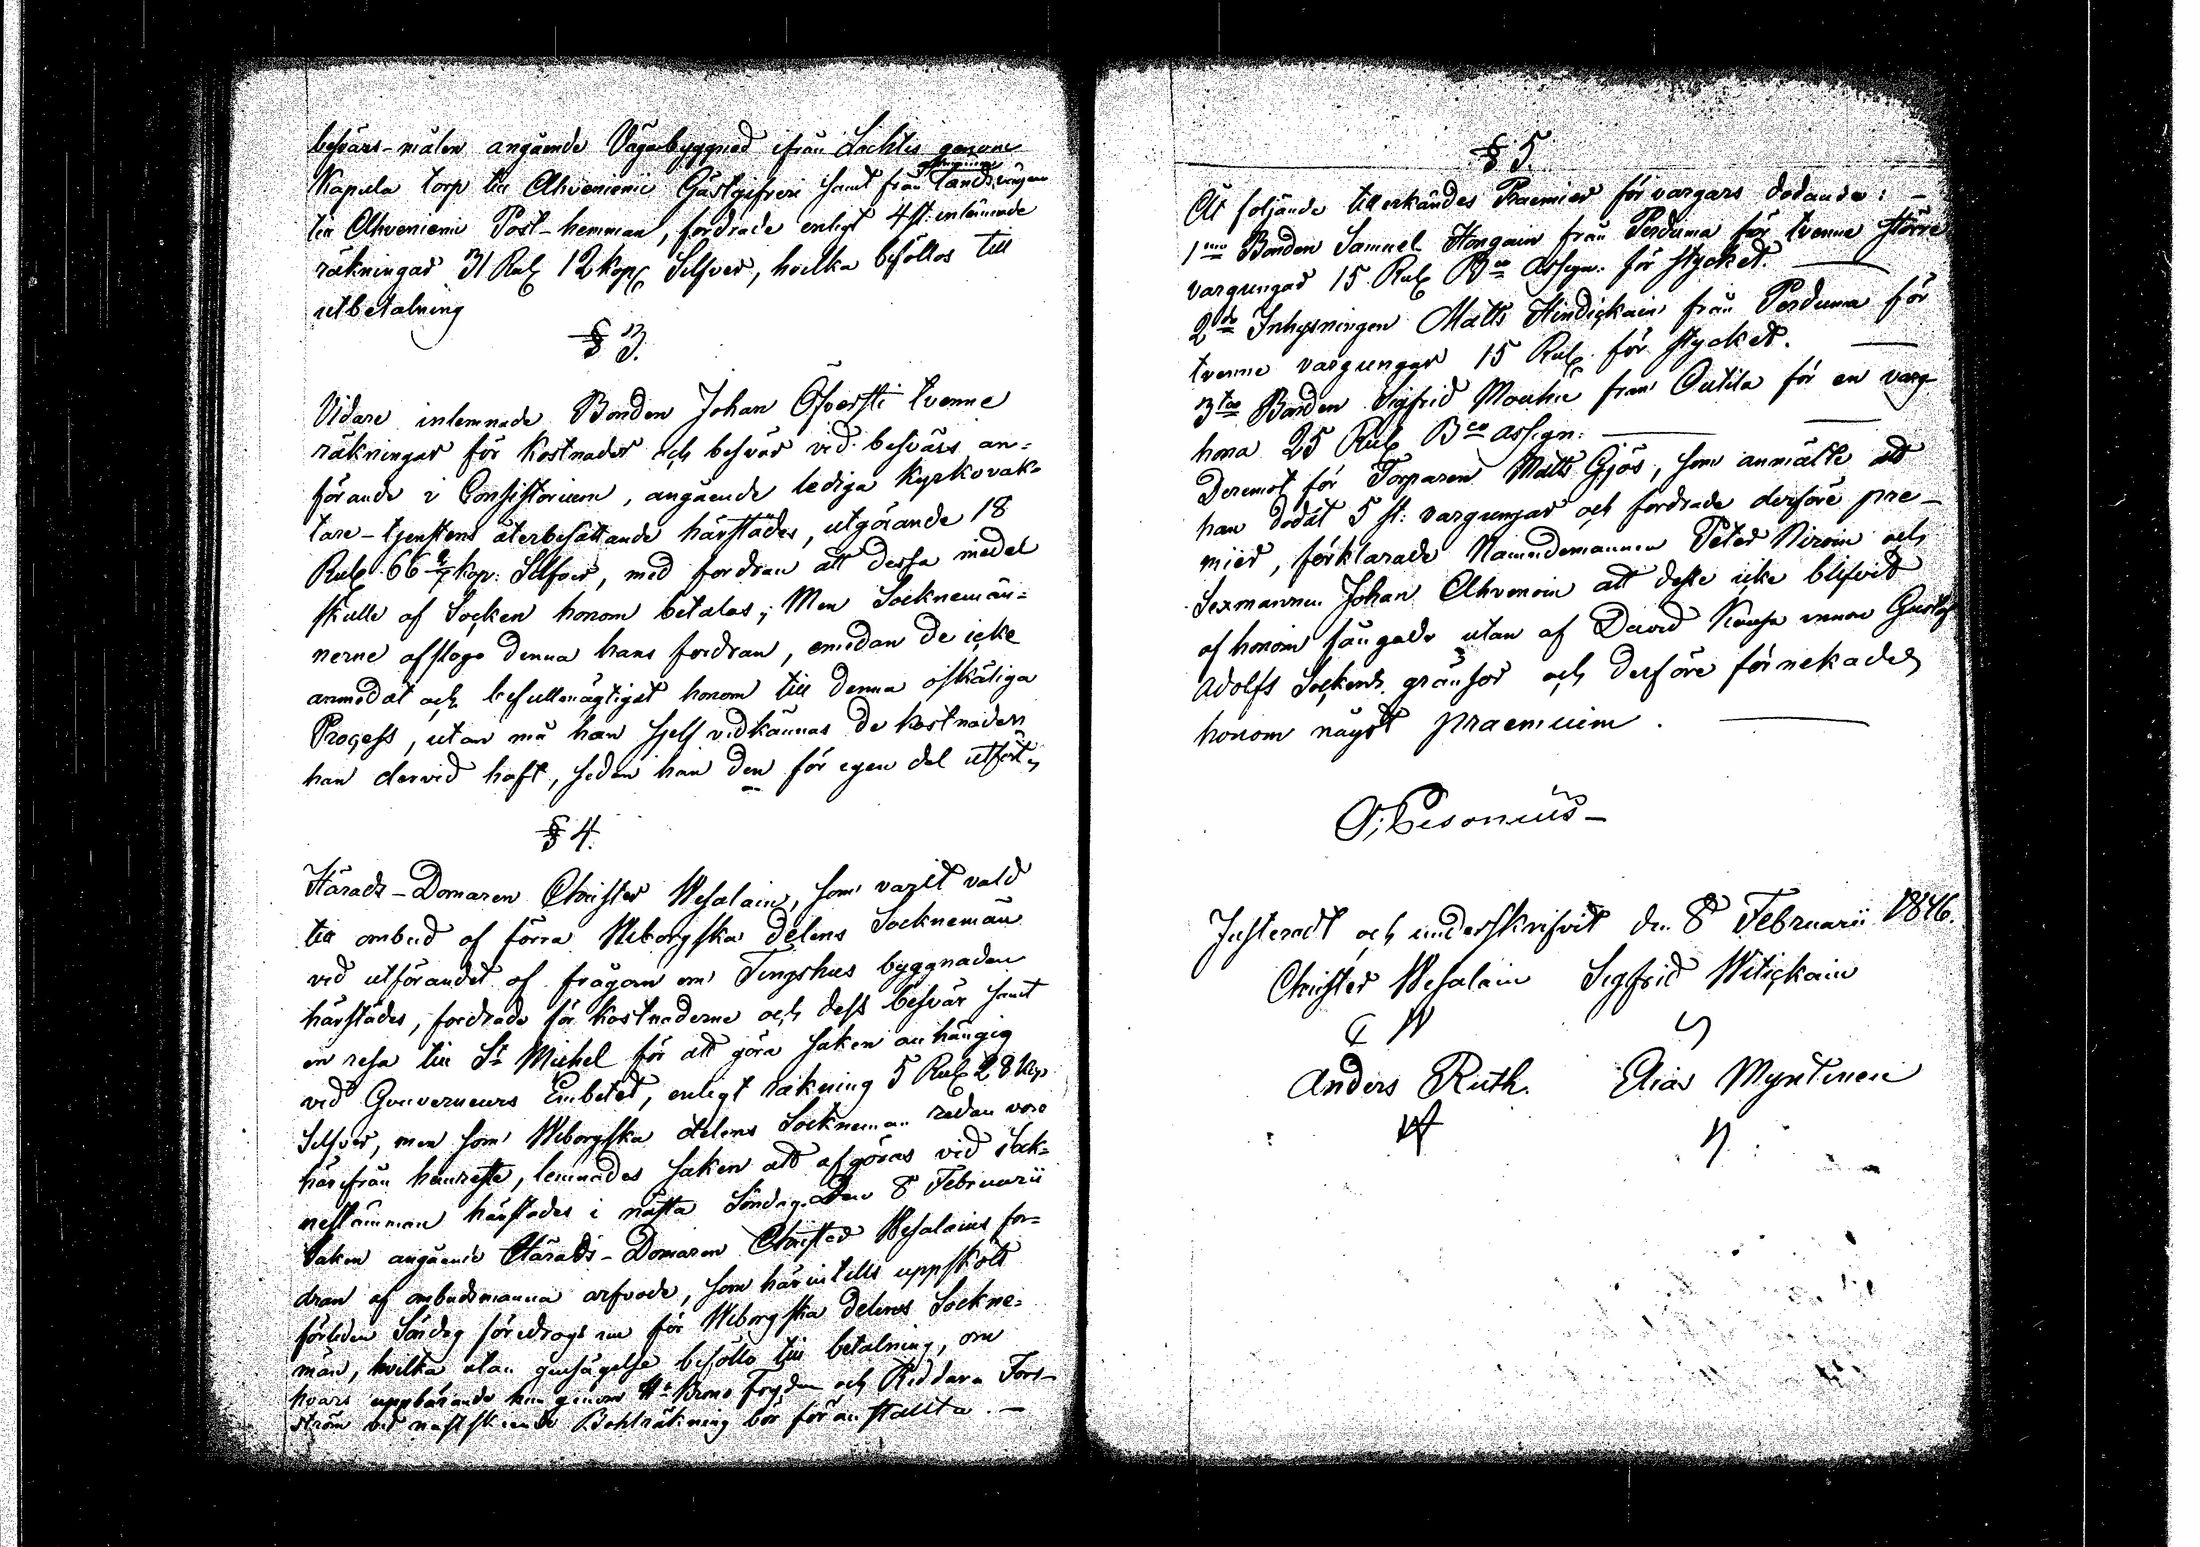 besvärs-målen angående Vägabyggnad ifrån Lachtis genom
Kapula torp till Ahveniemi Gästgifveri samt från Landsvägen
till Ahveniemi Post-hemman, fordrade enligt 4 st: inlämnade
räkningar 31 Rub 12 kop Silfver, hvilka beföllos till
utbetalning
§ 3.
Vidare inlemnade Bonden Johan Öfversti tvenne
räkningar för kostnader och besvär vid besvärs an-
förande i Consistorium, angående lediga Kyrkovak-
tare-tjenstens återbesättande härstädes, utgörande 18
Rub 66 kop: Silfver, med fordran att dessa medel
skulle af Socken honom betalas; Men Socknemän-
nerne afslogo denna hans fordran, emedan de icke
anmodat och befullmägtigat honom till denna oskäliga
Process, utan må han sjelf vidkännas de kostnader
han dervid haft, sedan han den för egen del utfört
§ 4.
Härads-Domaren Christer Wesalain, som varit vald
till ombud af förra Wiborgska delens Socknemän
vid utförandet af frågan om Tingshus byggnaden
härstädes, fordrade för kostnaderne och dess besvär samt
en resa till St Michel för att göra saken anhängig
vid Gouverneurs Embetet, enligt räkning 5 Rub 28 kop
Silfver, men som Wiborgska delens Socknemän redan voro
härifrån hemreste, lemnades saken att afgöras vid Sock-
nestämman härstädes i nästa Söndag. Den 8 Februarii
Saken angående Härads-Domaren Christer Wesalains for-
dran af ombudsmanna arfvode, som härintills uppsköts
förleden Söndag föredrogs nu för Wiborgska delens Sockne-
män, hvilka utan gensägelse beföllo till betalning, om
hvars uppbärande han genom Hr Krono Fogden och Riddaren Fors-
ström vid nästskeende Bohlräkning bör föranstalta. -
§ 5.
Åt följande tillerkändes Praemier för vargars dödande: -
1mo Bonden Samuel Hongain från Perduma för tvenne större
vargungar 15 Rub Bco Assign: för stycket.
2do Inhysningen Matts Hindickain från Perduma för
tvenne vargungar 15 Rub för stycket.
3tio Bonden Sigfrid Mouhu från Outila för en varg-
hona 25 Rub Bco assign:
Deremot för Torparen Matts Gjös, som anmälte att
han dödat 5 st: vargungar och fordrade derföre pre-
mier, förklarade Nämndemannen Peter Niroin och
Sexmannen Johan Ahvenoin att desse icke blifvit
af honom fångade utan af David Kaupa innom Gustaf
Adolfs Sockens gränsor och derföre förnekades
honom något praemium.
O: Pesonius -
Justeradt och underskrifvit den 8 Februarii 1846.
Christer Wesalain Sigfrid Witickain
C W
Anders Ruth. Elias Myntinen